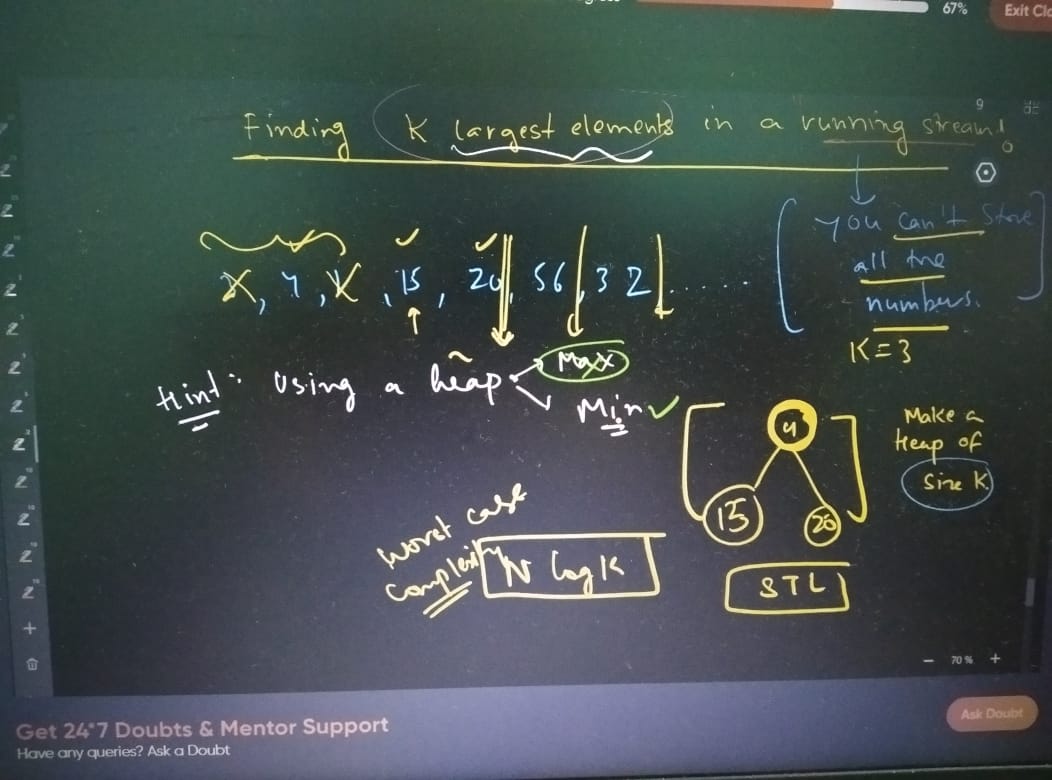 67%
Exit Clo
Finding K largest elements in a running stream!
9
you can't store
all the
numbers.
4, 15, 20, 56, 32 ......
K=3
Hint: Using a heap
Max
Min
9
15
20
Make a
Heap of
Size K
Worst case
Complexity
N log K
STL
70%
Get 24*7 Doubts & Mentor Support
Have any queries? Ask a Doubt
Ask Doubt